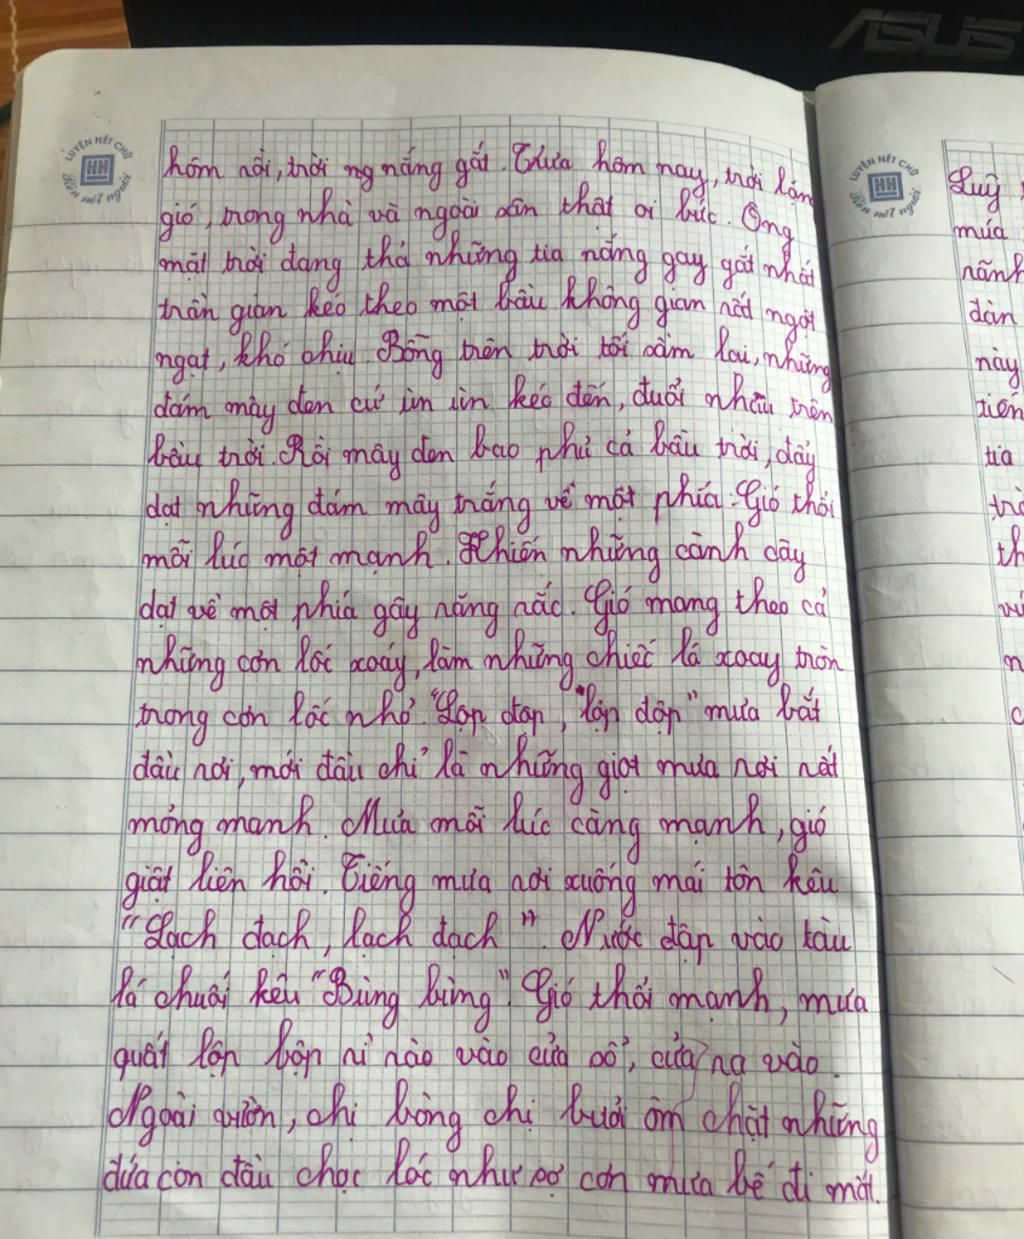 ASUS
LUYỆN NÉT CHỮ
HH
Rèn nết người
hôm rồi, trời nắng gắt. Trưa hôm nay, trời lặng
gió, trong nhà và ngoài sân thật oi bức. Ông
mặt trời đang thả những tia nắng gay gắt nhất
trần gian kéo theo một bầu không gian rất ngột
ngạt, khó chịu. Bỗng trên trời tối sầm lai, những
đám mây đen cứ ùn ùn kéo đến, đuổi nhau trên
bầu trời. Rồi mây đen bao phủ cả bầu trời, dẩy
dạt những đám mây trắng về một phía. Gió thổi
mỗi lúc một mạnh. Khiến những cành cây
dạt về một phía gãy răng rắc. Gió mang theo cả
những cơn lốc xoáy, làm những chiếc lá xoay tròn
trong cơn lốc nhỏ. "Lộp độp, "lộp độp" mưa bắt
đầu rơi, mới đầu chỉ là những giọt mưa rơi rất
mỏng manh. Mưa mỗi lúc càng mạnh, gió
giật liên hồi. Tiếng mưa rơi xuống mái tôn kêu
"Lạch đạch, lạch đạch". Nước đập vào tàu
lá chuối kêu "Bùng bùng". Gió thổi mạnh, mưa
quất lộp bộp ri rào vào cửa sổ, cửa ra vào.
Ngoài vườn, chị bòng chị bưởi ôm chặt những
đứa con đầu chọc lóc như sợ cơn mưa bế đi mất.
LUYỆN NÉT CHỮ
HH
Rèn nết người
Luỹ
múa
rãnh
đàn
này
tiến
tia